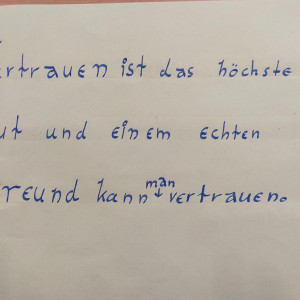 ertrauen ist das höchste
ut und einem echten
reund kann man vertrauen.